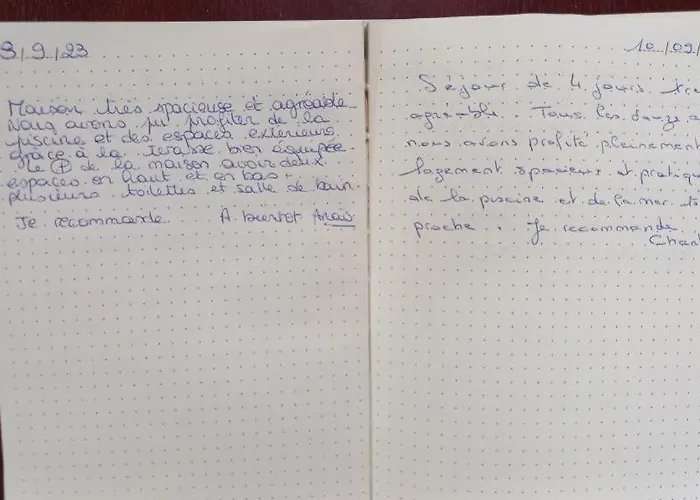 3/9/23
Maison très spacieuse et agréable.
Nous avons pu profiter de la
piscine et des espaces extérieurs
grâce à la terasse bien équipée.
le (P) de la maison avoir deux
espaces en haut et en bas.
plusieurs toilettes et salle de bain.
Je recommande. A bientot Anaïs
10/09/
Séjour de 4 jours
agréable. Tous les
nous avons profité pleinement
logement spacieux et pratiqu
de la piscine et de la mer
proche. Je recommande.